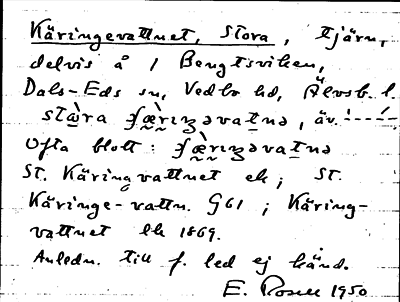 Käringevattnet, Stora, tjärn,
delvis å 1 Bengtsviken,
Dals-Eds sn, Vedbo hd, Älvsb. l.
stå̱ra ʃæ̀rɩŋəvatnə, äv. – – – –
Ofta blott: ʃæ̀rɩŋəvatnə
St. Käringvattnet ek; St.
Käringe-vattn. G61; Käring-
vattnet lk 1869.
Anledn. till f. led ej känd.
E. Rosell 1950